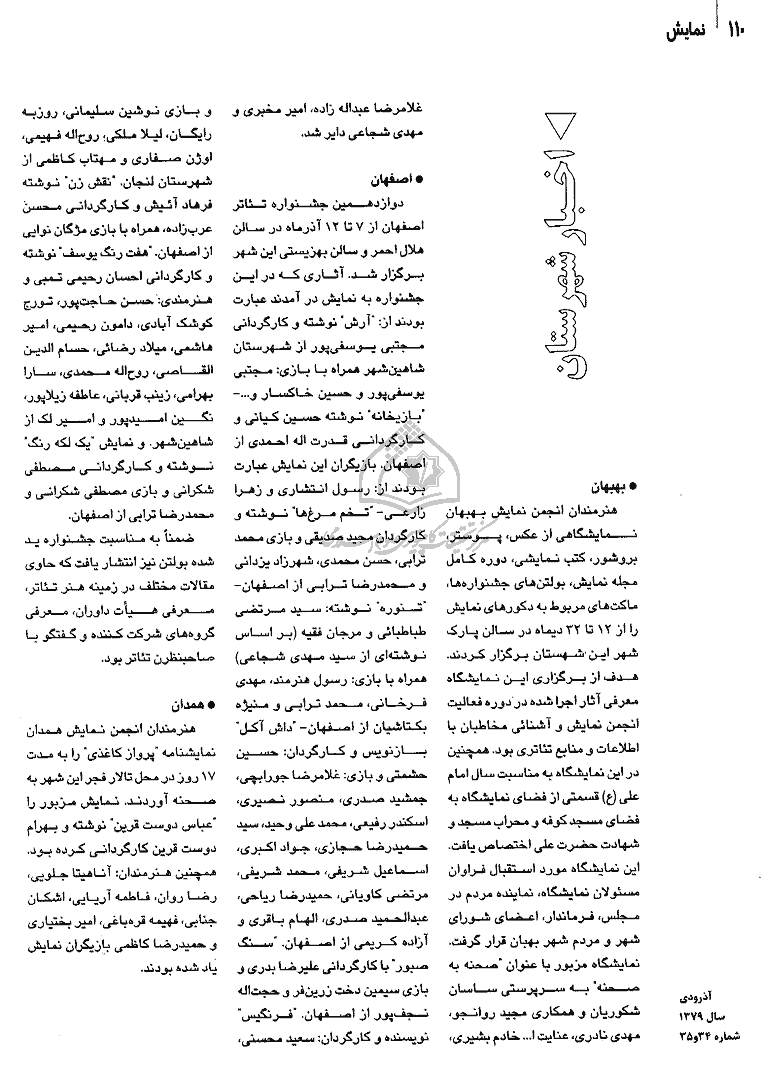 ۱۱۰ نمایش
اخبار شهرستان
● بهبهان
هنرمندان انجمن نمایش بهبهان
نـــمایشگاهی از عکس، پـــوستر،
بروشور، کتب نمایشی، دوره کامل
مجله نمایش، بولتن‌های جشنواره‌ها،
ماکت‌های مربوط به دکورهای نمایش
را از ۱۲ تا ۲۲ دیماه در سالن پارک
شهر این شهستان برگزار کردند.
هدف از برگزاری ایـن نمایشگاه
معرفی آثار اجرا شده در دوره فعالیت
انجمن نمایش و آشنائی مخاطبان با
اطلاعات و منابع تئاتری بود. همچنین
در این نمایشگاه به مناسبت سال امام
علی (ع) قسمتی از فضای نمایشگاه به
فضای مسجد کوفه و محراب مسجد و
شهادت حضرت علی اختصاص یافت.
این نمایشگاه مورد استقبال فراوان
مسئولان نمایشگاه، نماینده مردم در
مجلس، فرماندار، اعـضای شورای
شهر و مردم شهر بهبان قرار گرفت.
نمایشگاه مزبور با عنوان "صحنه به
صحنه" بـه سـرپرستی ساسان
شکوریان و همکاری مجید روانجو،
مهدی نادری، عنایت ا... خادم بشیری،
غلامرضا عبداله زاده، امیر مخبری و
مهدی شجاعی دایر شد.
● اصفهان
دوازدهـمین جشنواره تـئاتر
اصفهان از ۷ تا ۱۲ آذرماه در سالن
هلال احمر و سالن بهزیستی این شهر
برگزار شد. آثاری کـه در ایـن
جشنواره به نمایش در آمدند عبارت
بودند از: "آرش" نوشته و کارگردانی
مجتبی یـوسفی‌پور از شـهرستان
شاهین‌شهر همراه با بازی: مجتبی
یوسفی‌پور و حسین خاکسار و...-
"بازیخانه" نـوشته حسین کیانی و
کـارگردانـی قـدرت اله احمدی از
اصفهان. بازیگران این نمایش عبارت
بـودند از: رسول انتشاری و زهـرا
زارعـی- "تـخم مـرغ‌ها" نـوشته و
کارگردان مجید صدیقی و بازی محمد
ترابی، حسن محمدی، شهرزاد یزدانی
و مـحمدرضا تـرابی از اصفهان-
"تـنوره" نـوشته: سـید مـرتضی
طباطبائی و مرجان فقیه (بر اساس
نوشته‌ای از سید مهدی شجاعی)
همراه با بازی: رسول هنرمند، مهدی
فـرخانی، محمد تـرابی و منیژه
بکتاشیان از اصفهان- "داش آکل"
بـازنویس و کـارگردان: حسـین
حشمتی و بازی: غلامرضا جورابچی،
جمشید صدری، منصور نصیری،
اسکندر رفیعی، محمد علی وحید، سید
حـمیدرضا حجازی، جواد اکبری،
اسماعیل شریفی، محمد شریفی،
مرتضی کاویانی، حمیدرضا ریاحی،
عبدالحمید صدری، الهام بـاقری و
آزاده کریمی از اصفهان. "سـنگ
صبور" با کارگردانی علیرضا بدری و
بازی سیمین دخت زرین‌فر و حجت‌اله
نجف‌پور از اصفهان. "فـرنگیس"
نویسنده و کارگردان: سعید محسنی،
و بـازی نـوشین سلیمانی، روزبـه
رایگان، لیلا ملکی، روح‌اله فهیمی،
اوژن صـفاری و مـهتاب کاظمی از
شهرستان لنجان. "نقش زن" نـوشته
فرهاد آئیش و کارگردانی محسن
عرب‌زاده، همراه با بازی مژگان نوایی
از اصفهان. "هفت رنگ یوسف" نوشته
و کارگردانی احسان رحیمی تمبی و
هـنرمندی: حسن حاجت‌پور، تـورج
کوشک آبادی، دامون رحیمی، امیر
هاشمی، میلاد رضائی، حسام الدین
القـاصی، روح‌اله محمدی، سـارا
بهرامی، زینب قربانی، عاطفه زیلاپور،
نگین امـیدپور و امیر لک از
شاهین‌شهر. و نمایش "یک لکه رنگ"
نـوشته و کـارگردانـی مـصطفی
شکرانی و بازی مصطفی شکرانی و
محمدرضا ترابی از اصفهان.
ضمناً به مناسبت جشنواره یـد
شده بولتن نیز انتشار یافت که حاوی
مقالات مختلف در زمینه هنر تـئاتر،
مـعرفی هـیأت داوران، مـعرفی
گروه‌های شرکت کننده و گفتگو بـا
صاحبنظرن تئاتر بود.
● همدان
هنرمندان انجمن نمایش همدان
نمایشنامه "پرواز کاغذی" را به مدت
۱۷ روز در محل تالار فجر این شهر به
صحنه آوردند. نمایش مزبور را
"عباس دوست قرین" نوشته و بهرام
دوست قرین کارگردانی کرده بود.
همچنین هنرمندان: آناهیتا جلویی،
رضـا روان، فاطمه آریایی، اشکان
جنابی، فهیمه قره‌باغی، امیر بختیاری
و حمیدرضا کاظمی بازیگران نمایش
یاد شده بودند.
آذرودی
سال ۱۳۷۹
شماره ۳۴و۳۵